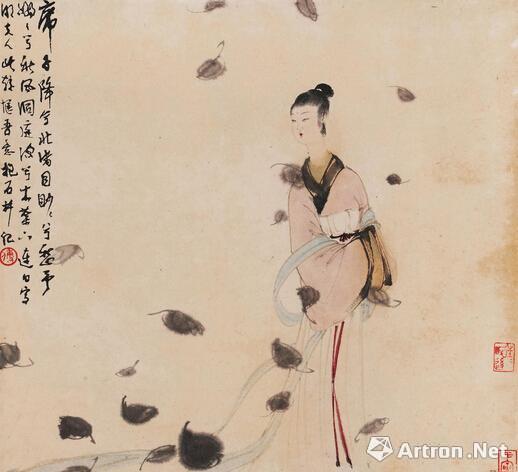 帝子降兮北渚目眇〻兮愁予
嫋〻兮秋風洞庭波兮木葉下連日寫
湘夫人此殊愜吾意抱石并記
傅
Artron.Net